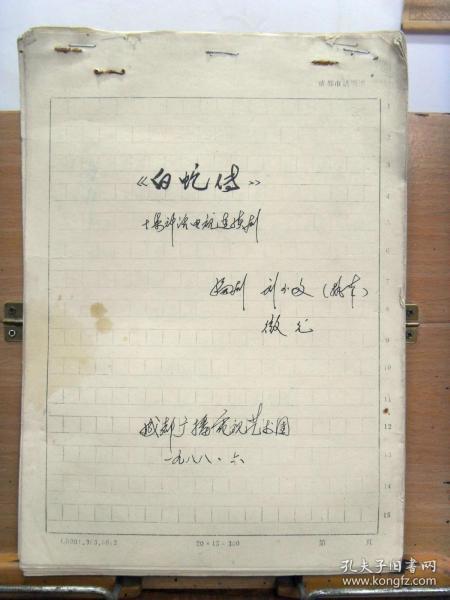 成都市话剧团
1
2
3
4
5
7
8
9
10
11
12
13
15
《白蛇传》
十集神话电视连续剧
编剧 刘少文（执笔）
微凡
成都广播电视艺术团
一九八八·六
20×15=300
第 页
孔夫子旧书网
www.kongfz.com